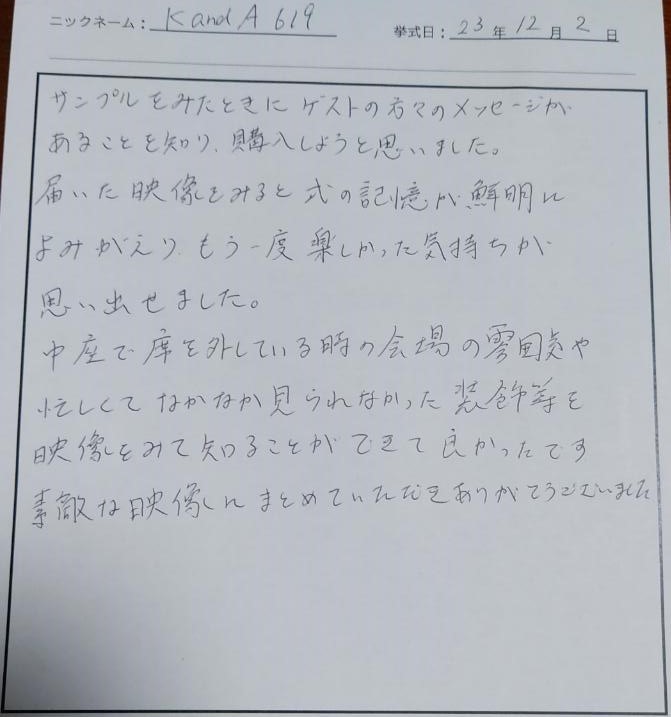 ニックネーム： K and A 619 挙式日： 23 年 12 月 2 日
サンプルをみたときに ゲストの方々のメッセージが
あることを知り、購入しようと思いました。
届いた映像をみると 式の記憶が鮮明に
よみがえり、もう一度楽しかった気持ちが
思い出せました。
中座で席を外している時の会場の雰囲気や
忙しくてなかなか見られなかった装飾等を
映像をみて知ることができて良かったです
素敵な映像にまとめていただきありがとうございました